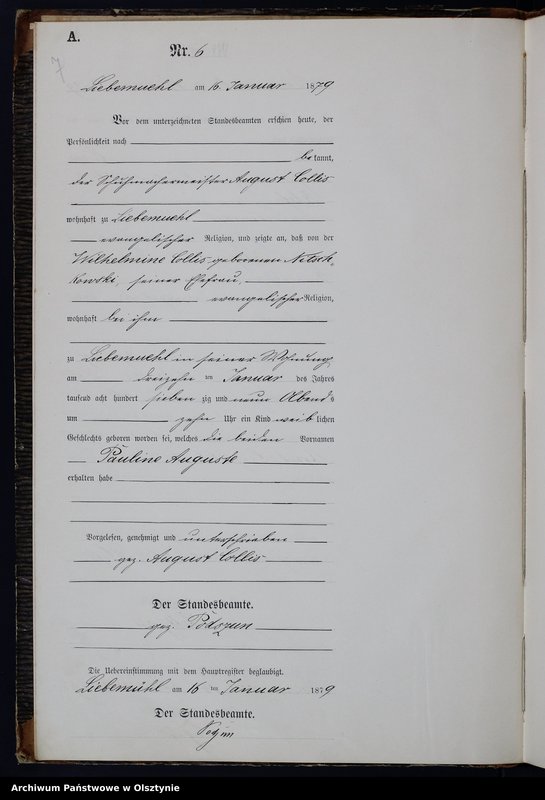 A.
7
Nr. 6
Liebemuehl am 16 Januar 1879
Vor dem unterzeichneten Standesbeamten erschien heute, der
Persönlichkeit nach
bekannt,
der Schuhmachermeister August Collis
wohnhaft zu Liebemuehl
evangelischer Religion, und zeigte an, daß von der
Wilhelmine Collis geborenen Netsch-
kowski, seiner Ehefrau,
evangelischer Religion,
wohnhaft bei ihm
zu Liebemuehl in seiner Wohnung
am dreizehn ten Januar des Jahres
tausend acht hundert sieben zig und neun Abends
um zehn Uhr ein Kind weiblichen
Geschlechts geboren worden sei, welches die beiden Vornamen
Pauline Auguste
erhalten habe
Vorgelesen, genehmigt und unterschrieben
gez. August Collis
Der Standesbeamte.
gez. Podszun
Die Uebereinstimmung mit dem Hauptregister beglaubigt.
Liebemühl am 16 ten Januar 1879
Der Standesbeamte.
Archiwum Państwowe w Olsztynie